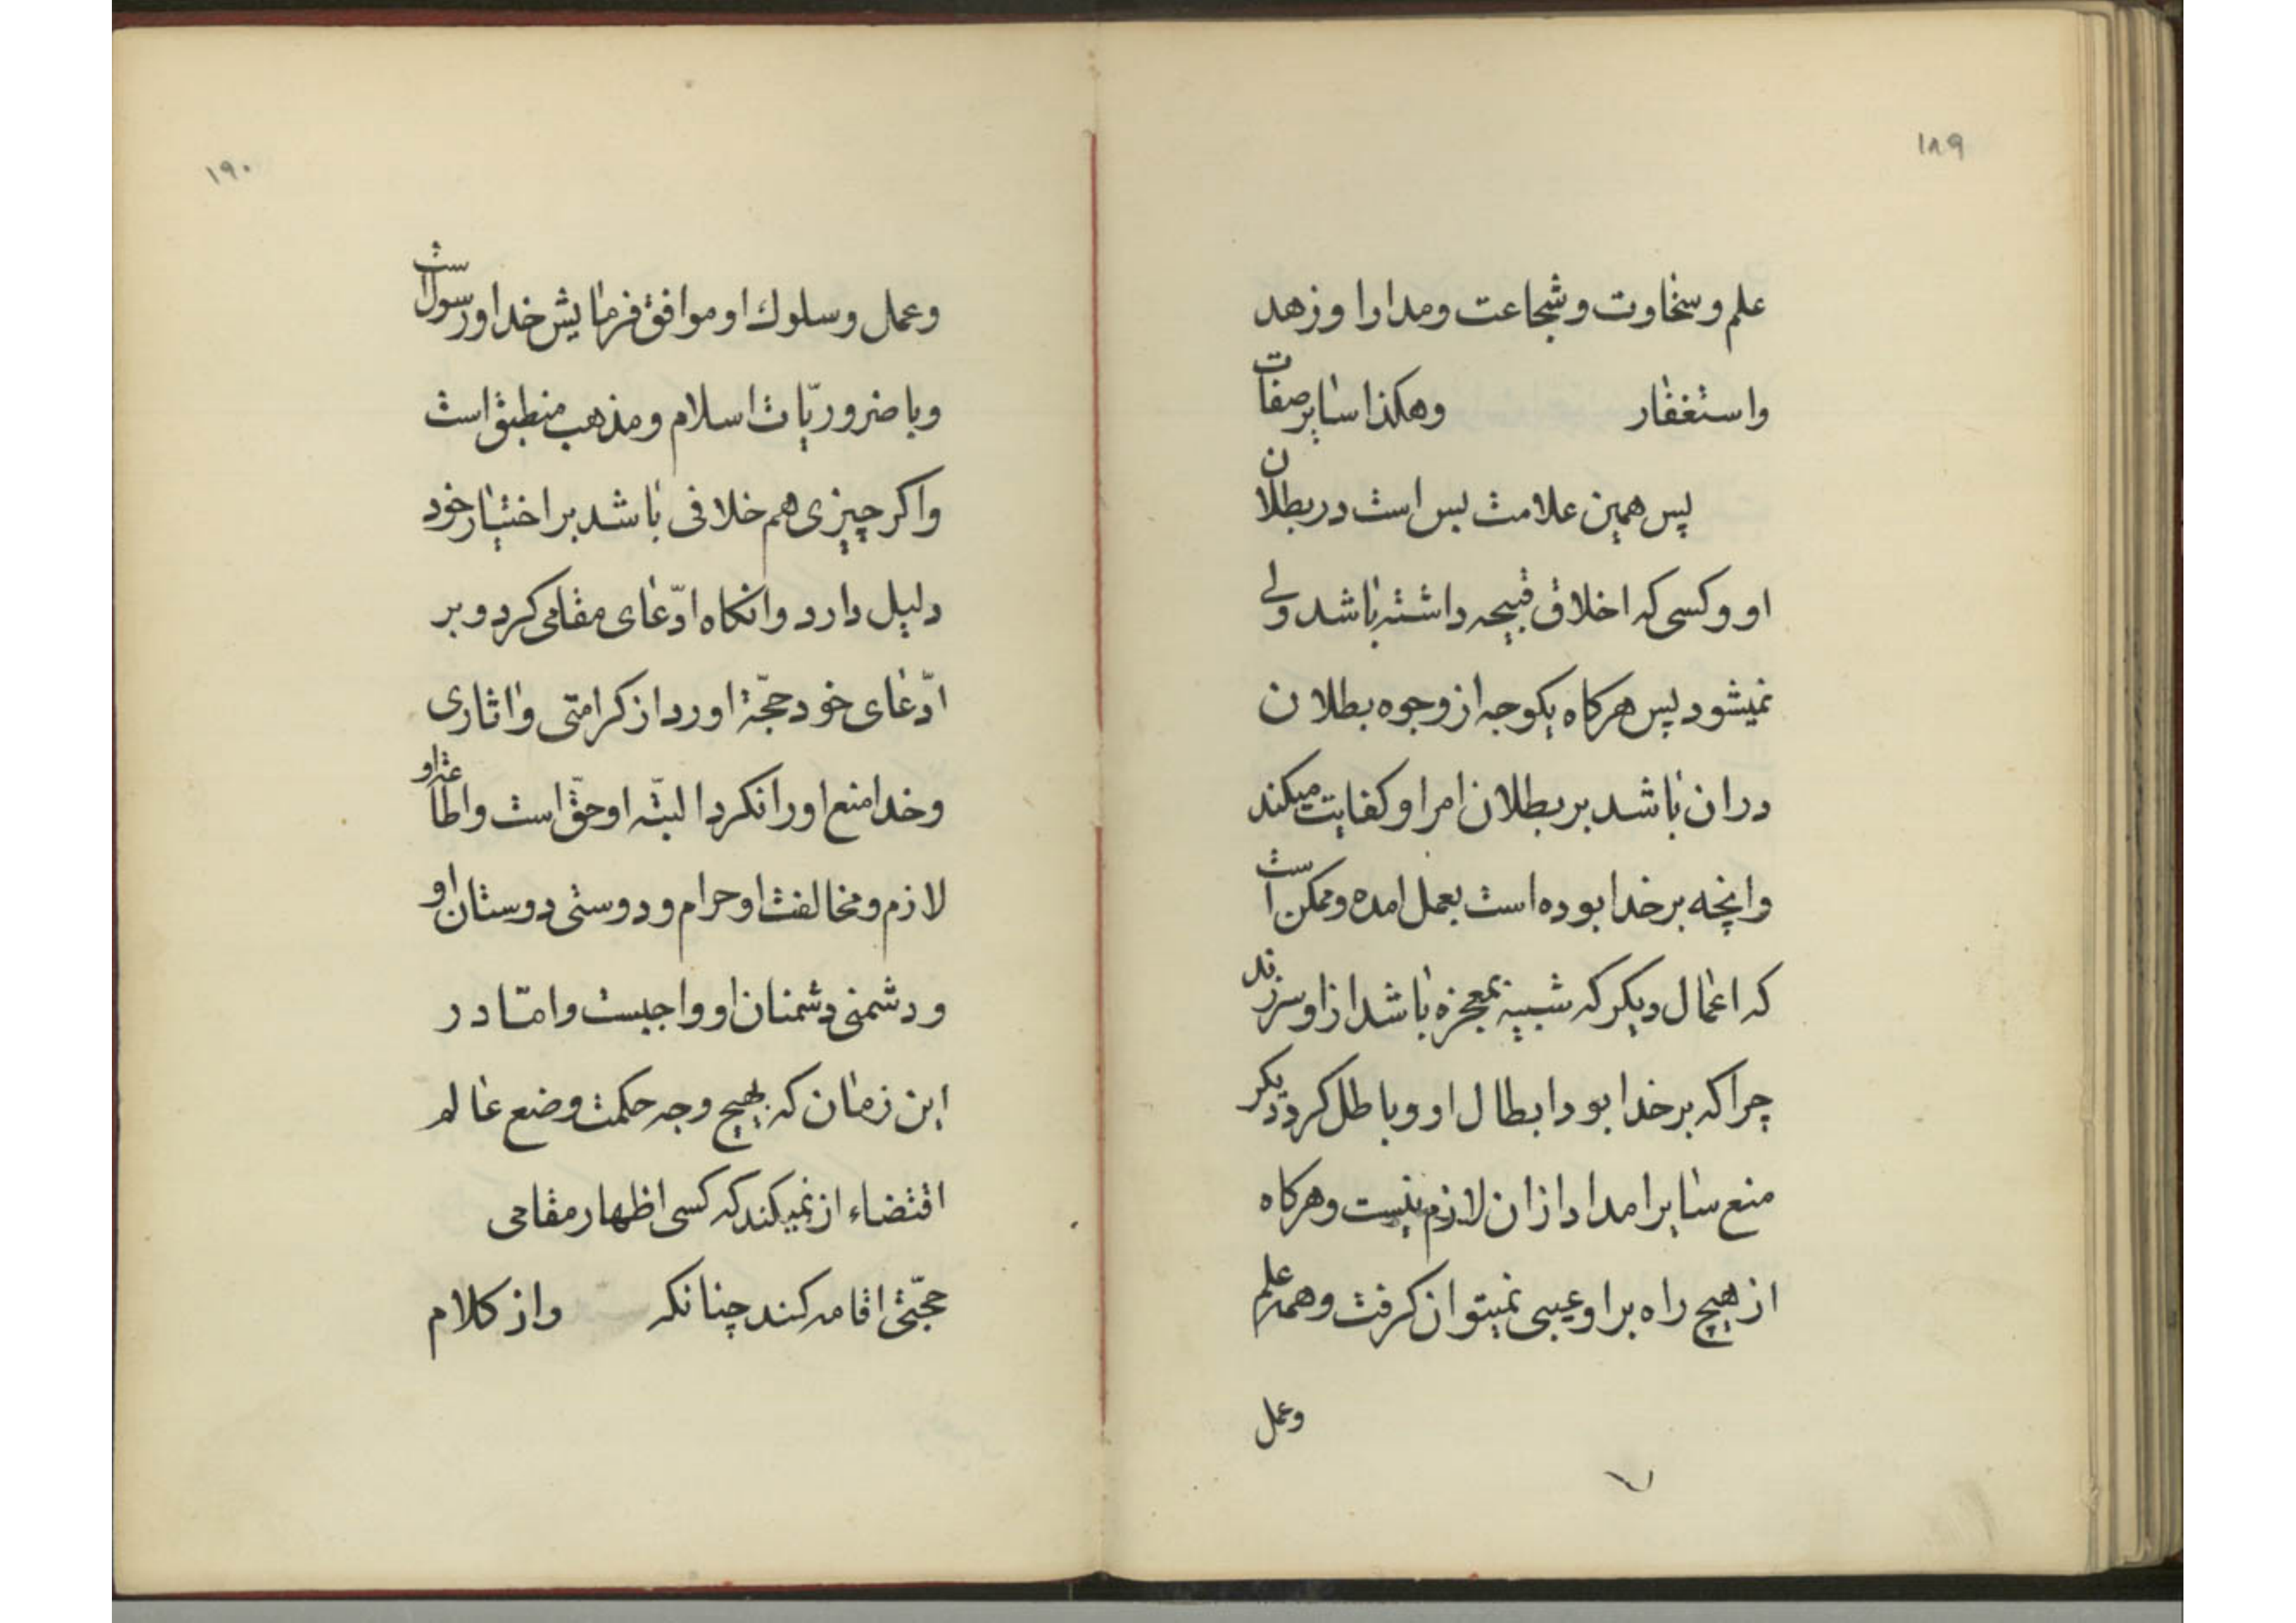 ۱۸۹
علم و سخاوت و شجاعت و مدارا و زهد
و استغفار وهکذا سایر صفات
پس همین علامت بس است در بطلان
او و کسی که اخلاق قبیحه داشته باشد ولی
نمیشود پس هرکاه یکوجه از وجوه بطلان
در ان باشد بر بطلان امر او کفایت میکند
و انچه بر خدا بوده است بعمل امده و ممکن است
که اعمال دیکر که شبیه بمعجزه باشد از او سرزند
چرا که بر خدا بود ابطال او و باطل کرد دیکر
منع سایر امداد از ان لازم نیست و هرکاه
از هیچ راه بر او عیبی نمیتوان کرفت و همه علم
و عمل
۱۹۰
و عمل و سلوك او موافق فرمایش خدا و رسول است
و با ضروریّات اسلام و مذهب منطبق است
و اکر چیزی هم خلافی باشد بر اختیار خود
دلیل دارد و انکاه ادّعای مقامی کرد و بر
ادّعای خود حجّة اورد از کرامتی و اثاری
و خدا منع او را نکرد البتّه او حقّ است و اطاعت او
لازم و مخالفت او حرام و دوستی دوستان او
و دشمنی دشمنان او واجبست و امّا در
این زمان که بهیچ وجه حکمت وضع عالم
اقتضاء از نمیکند که کسی اظهار مقامی
حجّتی اقامه کند چنانکه و از کلام